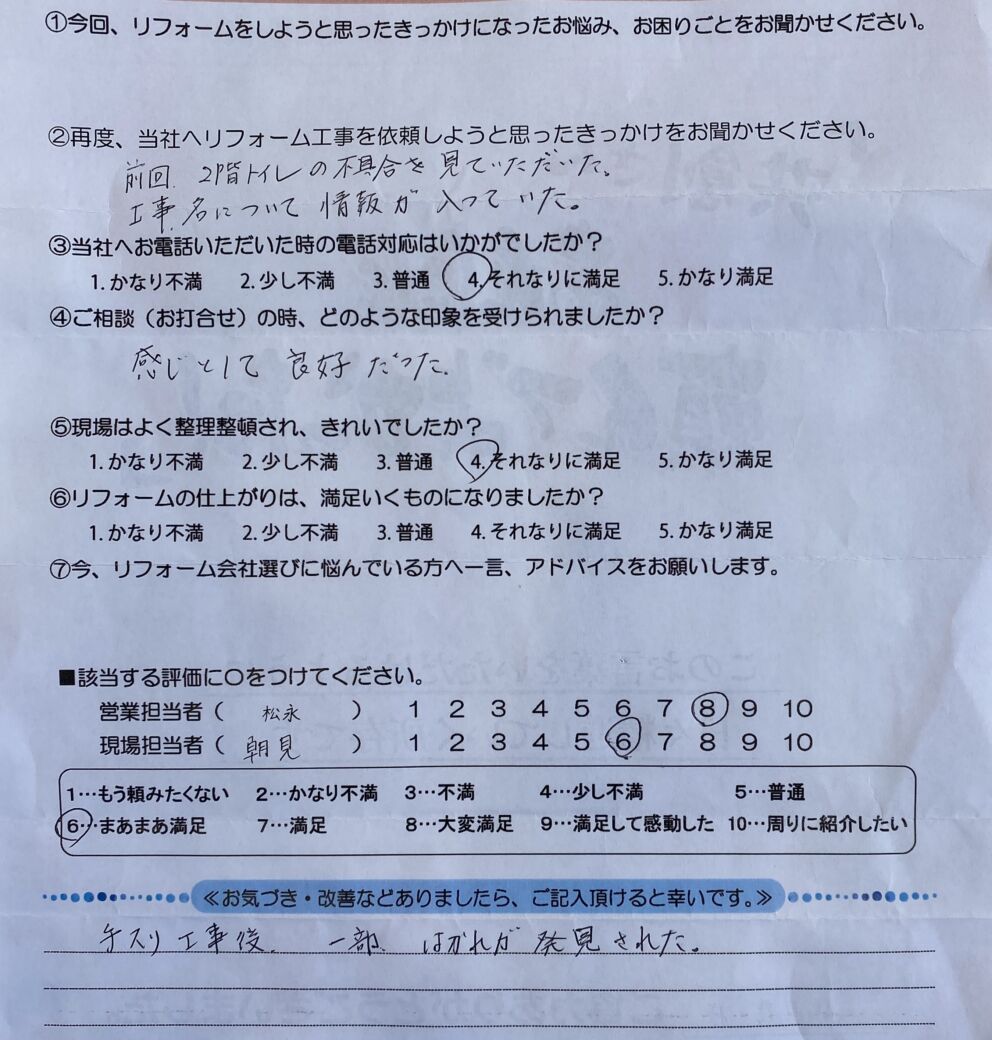 ①今回、リフォームをしようと思ったきっかけになったお悩み、お困りごとをお聞かせください。
②再度、当社へリフォーム工事を依頼しようと思ったきっかけをお聞かせください。
前回、2階トイレの不具合を見ていただいた。
工事名について情報が入っていた。
③当社へお電話いただいた時の電話対応はいかがでしたか？
1.かなり不満 2.少し不満 3.普通 4.それなりに満足 5.かなり満足
④ご相談（お打合せ）の時、どのような印象を受けられましたか？
感じとして良好だった.
⑤現場はよく整理整頓され、きれいでしたか？
1.かなり不満 2.少し不満 3.普通 4.それなりに満足 5.かなり満足
⑥リフォームの仕上がりは、満足いくものになりましたか？
1.かなり不満 2.少し不満 3.普通 4.それなりに満足 5.かなり満足
⑦今、リフォーム会社選びに悩んでいる方へ一言、アドバイスをお願いします。
■該当する評価に〇をつけてください。
営業担当者（ 松永 ） 1 2 3 4 5 6 7 8 9 10
現場担当者（ 朝見 ） 1 2 3 4 5 6 7 8 9 10
1…もう頼みたくない 2…かなり不満 3…不満 4…少し不満 5…普通
6…まあまあ満足 7…満足 8…大変満足 9…満足して感動した 10…周りに紹介したい
≪お気づき・改善などありましたら、ご記入頂けると幸いです。≫
手スリ工事後、一部、はがれが発見された。